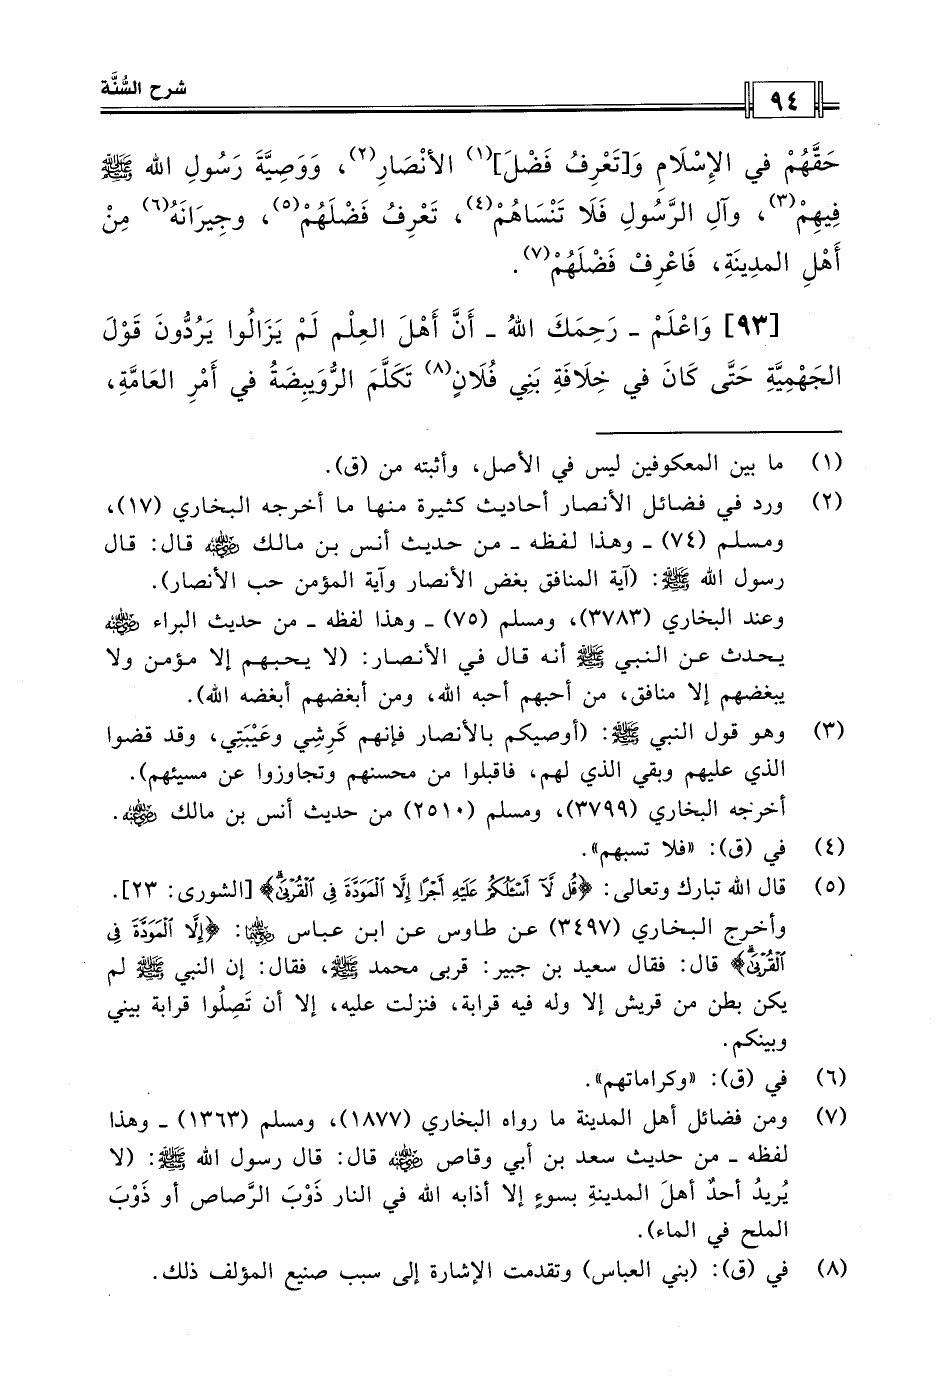 شرح السُّنَّة
٩٤
حَقَّهُمْ في الإِسْلَامِ وَ[تَعْرِفُ فَضْلَ](١) الأنْصَارِ(٢)، وَوَصِيَّةَ رَسُولِ الله ﷺ
فِيهِمْ(٣)، وآلِ الرَّسُولِ فَلَا تَنْسَاهُمْ(٤)، تَعْرِفُ فَضْلَهُمْ(٥)، وجِيرَانَهُ(٦) مِنْ
أَهْلِ المدِينَةِ، فَاعْرِفْ فَضْلَهُمْ(٧).
[٩٣] وَاعْلَمْ ـ رَحِمَكَ اللهُ ـ أَنَّ أَهْلَ العِلْمِ لَمْ يَزَالُوا يَرُدُّونَ قَوْلَ
الجَهْمِيَّةِ حَتَّى كَانَ في خِلَافَةِ بَنِي فُلَانٍ(٨) تَكَلَّمَ الرُّوَيبِضَةُ في أَمْرِ العَامَّةِ،
(١) ما بين المعكوفين ليس في الأصل، وأثبته من (ق).
(٢) ورد في فضائل الأنصار أحاديث كثيرة منها ما أخرجه البخاري (١٧)،
ومسلم (٧٤) ـ وهذا لفظه ـ من حديث أنس بن مالك رضي الله عنه قال: قال
رسول الله ﷺ: (آية المنافق بغض الأنصار وآية المؤمن حب الأنصار).
وعند البخاري (٣٧٨٣)، ومسلم (٧٥) ـ وهذا لفظه ـ من حديث البراء رضي الله عنه
يحدث عن النبي ﷺ أنه قال في الأنصار: (لا يحبهم إلا مؤمن ولا
يبغضهم إلا منافق، من أحبهم أحبه الله، ومن أبغضهم أبغضه الله).
(٣) وهو قول النبي ﷺ: (أوصيكم بالأنصار فإنهم كَرِشِي وعَيْبَتِي، وقد قضوا
الذي عليهم وبقي الذي لهم، فاقبلوا من محسنهم وتجاوزوا عن مسيئهم).
أخرجه البخاري (٣٧٩٩)، ومسلم (٢٥١٠) من حديث أنس بن مالك رضي الله عنه.
(٤) في (ق): «فلا تسبهم».
(٥) قال الله تبارك وتعالى: ﴿قُل لَّآ أَسْـَٔلُكُمْ عَلَيْهِ أَجْرًا إِلَّا ٱلْمَوَدَّةَ فِى ٱلْقُرْبَىٰ﴾ [الشورى: ٢٣].
وأخرج البخاري (٣٤٩٧) عن طاوس عن ابن عباس رضي الله عنهما: ﴿إِلَّا ٱلْمَوَدَّةَ فِى
ٱلْقُرْبَىٰ﴾ قال: فقال سعيد بن جبير: قربى محمد ﷺ، فقال: إن النبي ﷺ لم
يكن بطن من قريش إلا وله فيه قرابة، فنزلت عليه، إلا أن تَصِلُوا قرابة بيني
وبينكم.
(٦) في (ق): «وكراماتهم».
(٧) ومن فضائل أهل المدينة ما رواه البخاري (١٨٧٧)، ومسلم (١٣٦٣) ـ وهذا
لفظه ـ من حديث سعد بن أبي وقاص رضي الله عنه قال: قال رسول الله ﷺ: (لا
يُريدُ أحدٌ أهلَ المدينةِ بسوءٍ إلا أذابه الله في النار ذَوْبَ الرَّصاص أو ذَوْبَ
الملح في الماء).
(٨) في (ق): (بني العباس) وتقدمت الإشارة إلى سبب صنيع المؤلف ذلك.